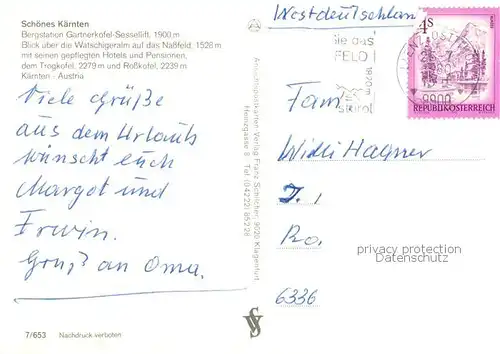 Schönes Kärnten
Bergstation Gartnerkofel-Sessellift, 1900 m
Blick über die Watschigeralm auf das Naßfeld, 1528 m
mit seinen gepflegten Hotels und Pensionen,
dem Trogkofel, 2279 m und Roßkofel, 2239 m
Kärnten - Austria
Viele Grüße
aus dem Urlaub
wünscht euch
Margot und
Erwin.
Gruß an Oma.
7/653 Nachdruck verboten
Ansichtspostkarten-Verlag Franz Schilcher, 9020 Klagenfurt
Tel. (04222) 85228
Westdeutschlan
4S
REPUBLIK ÖSTERREICH
9900
Sie das
1920m
Fam.
Willi Hagner
Ro.
6336
privacy protection
Datenschutz